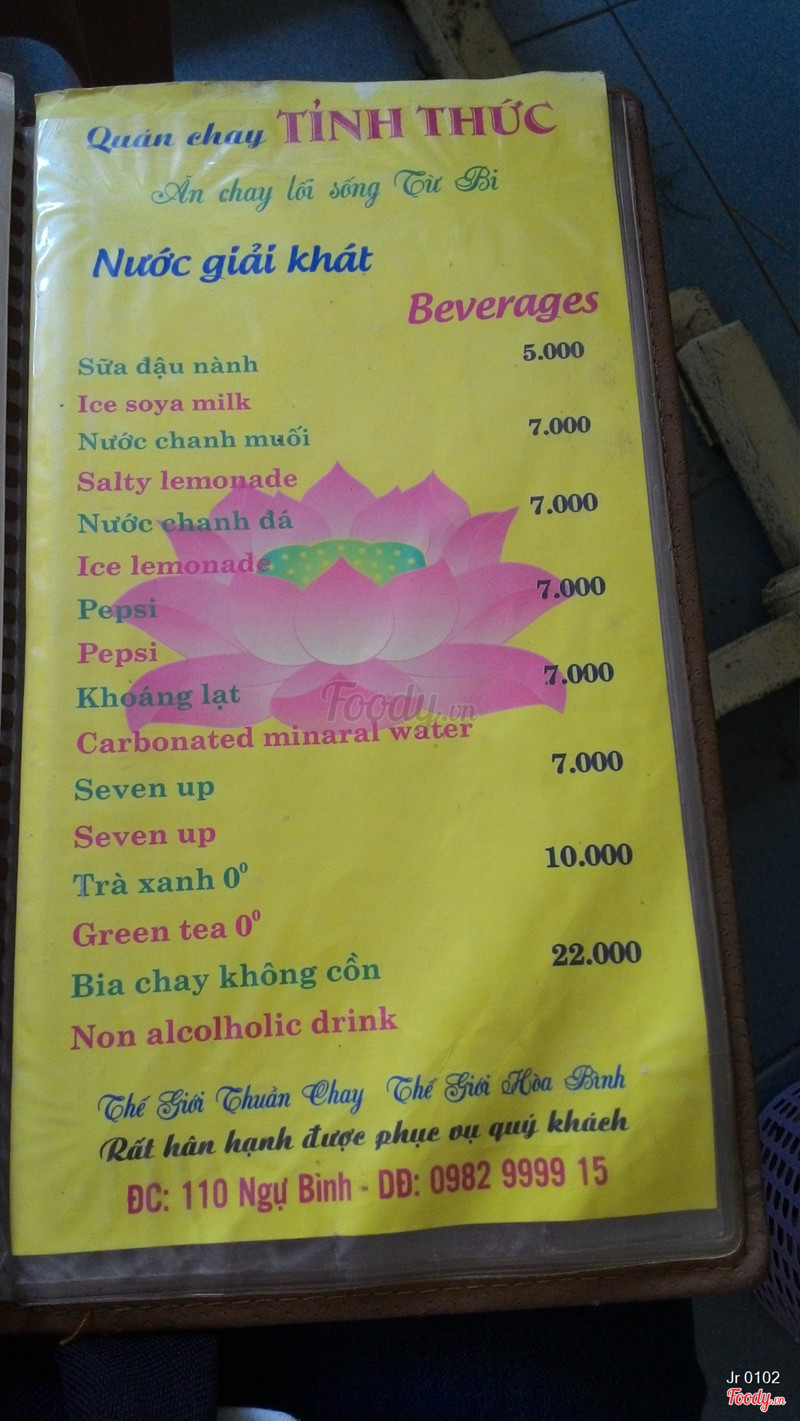 Quán chay TỈNH THỨC
Ăn chay lối sống Từ Bi
Nước giải khát
Beverages
Sữa đậu nành 5.000
Ice soya milk
Nước chanh muối 7.000
Salty lemonade
Nước chanh đá 7.000
Ice lemonade
Pepsi 7.000
Pepsi
Khoáng lạt 7.000
Carbonated minaral water
Seven up 7.000
Seven up
Trà xanh 0⁰ 10.000
Green tea 0⁰
Bia chay không cồn 22.000
Non alcolholic drink
Thế Giới Thuần Chay Thế Giới Hòa Bình
Rất hân hạnh được phục vụ quý khách
ĐC: 110 Ngự Bình - DĐ: 0982 9999 15
Foody.vn
Jr 0102
Foody.vn